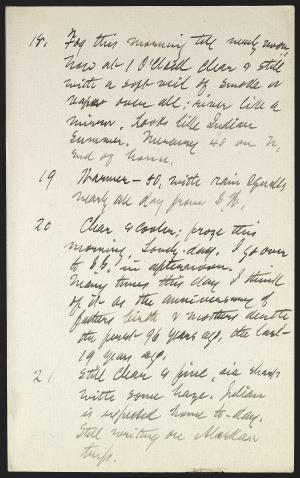 18. Fog this morning till nearly noon,
now at 1 O'clock clear & still
with a soft veil of smoke or
vapor over all; river like a
mirror. Looks like Indian
Summer. Mercury 40 on N.
End of house.
19 Warmer - 50, with rain squalls
nearly all day from S.W.
20 Clear & cooler; froze this
morning. Lovely day. I go over
to in afternoon.
Many times this day I think
of it as the anniversary of
fathers birth & mothers death
the first 96 years ago, the last
19 years ago.
21 Still clear & fine, air sharp
with some haze. Julian
is expected home to-day.
Still writing on Alaskan
trip.